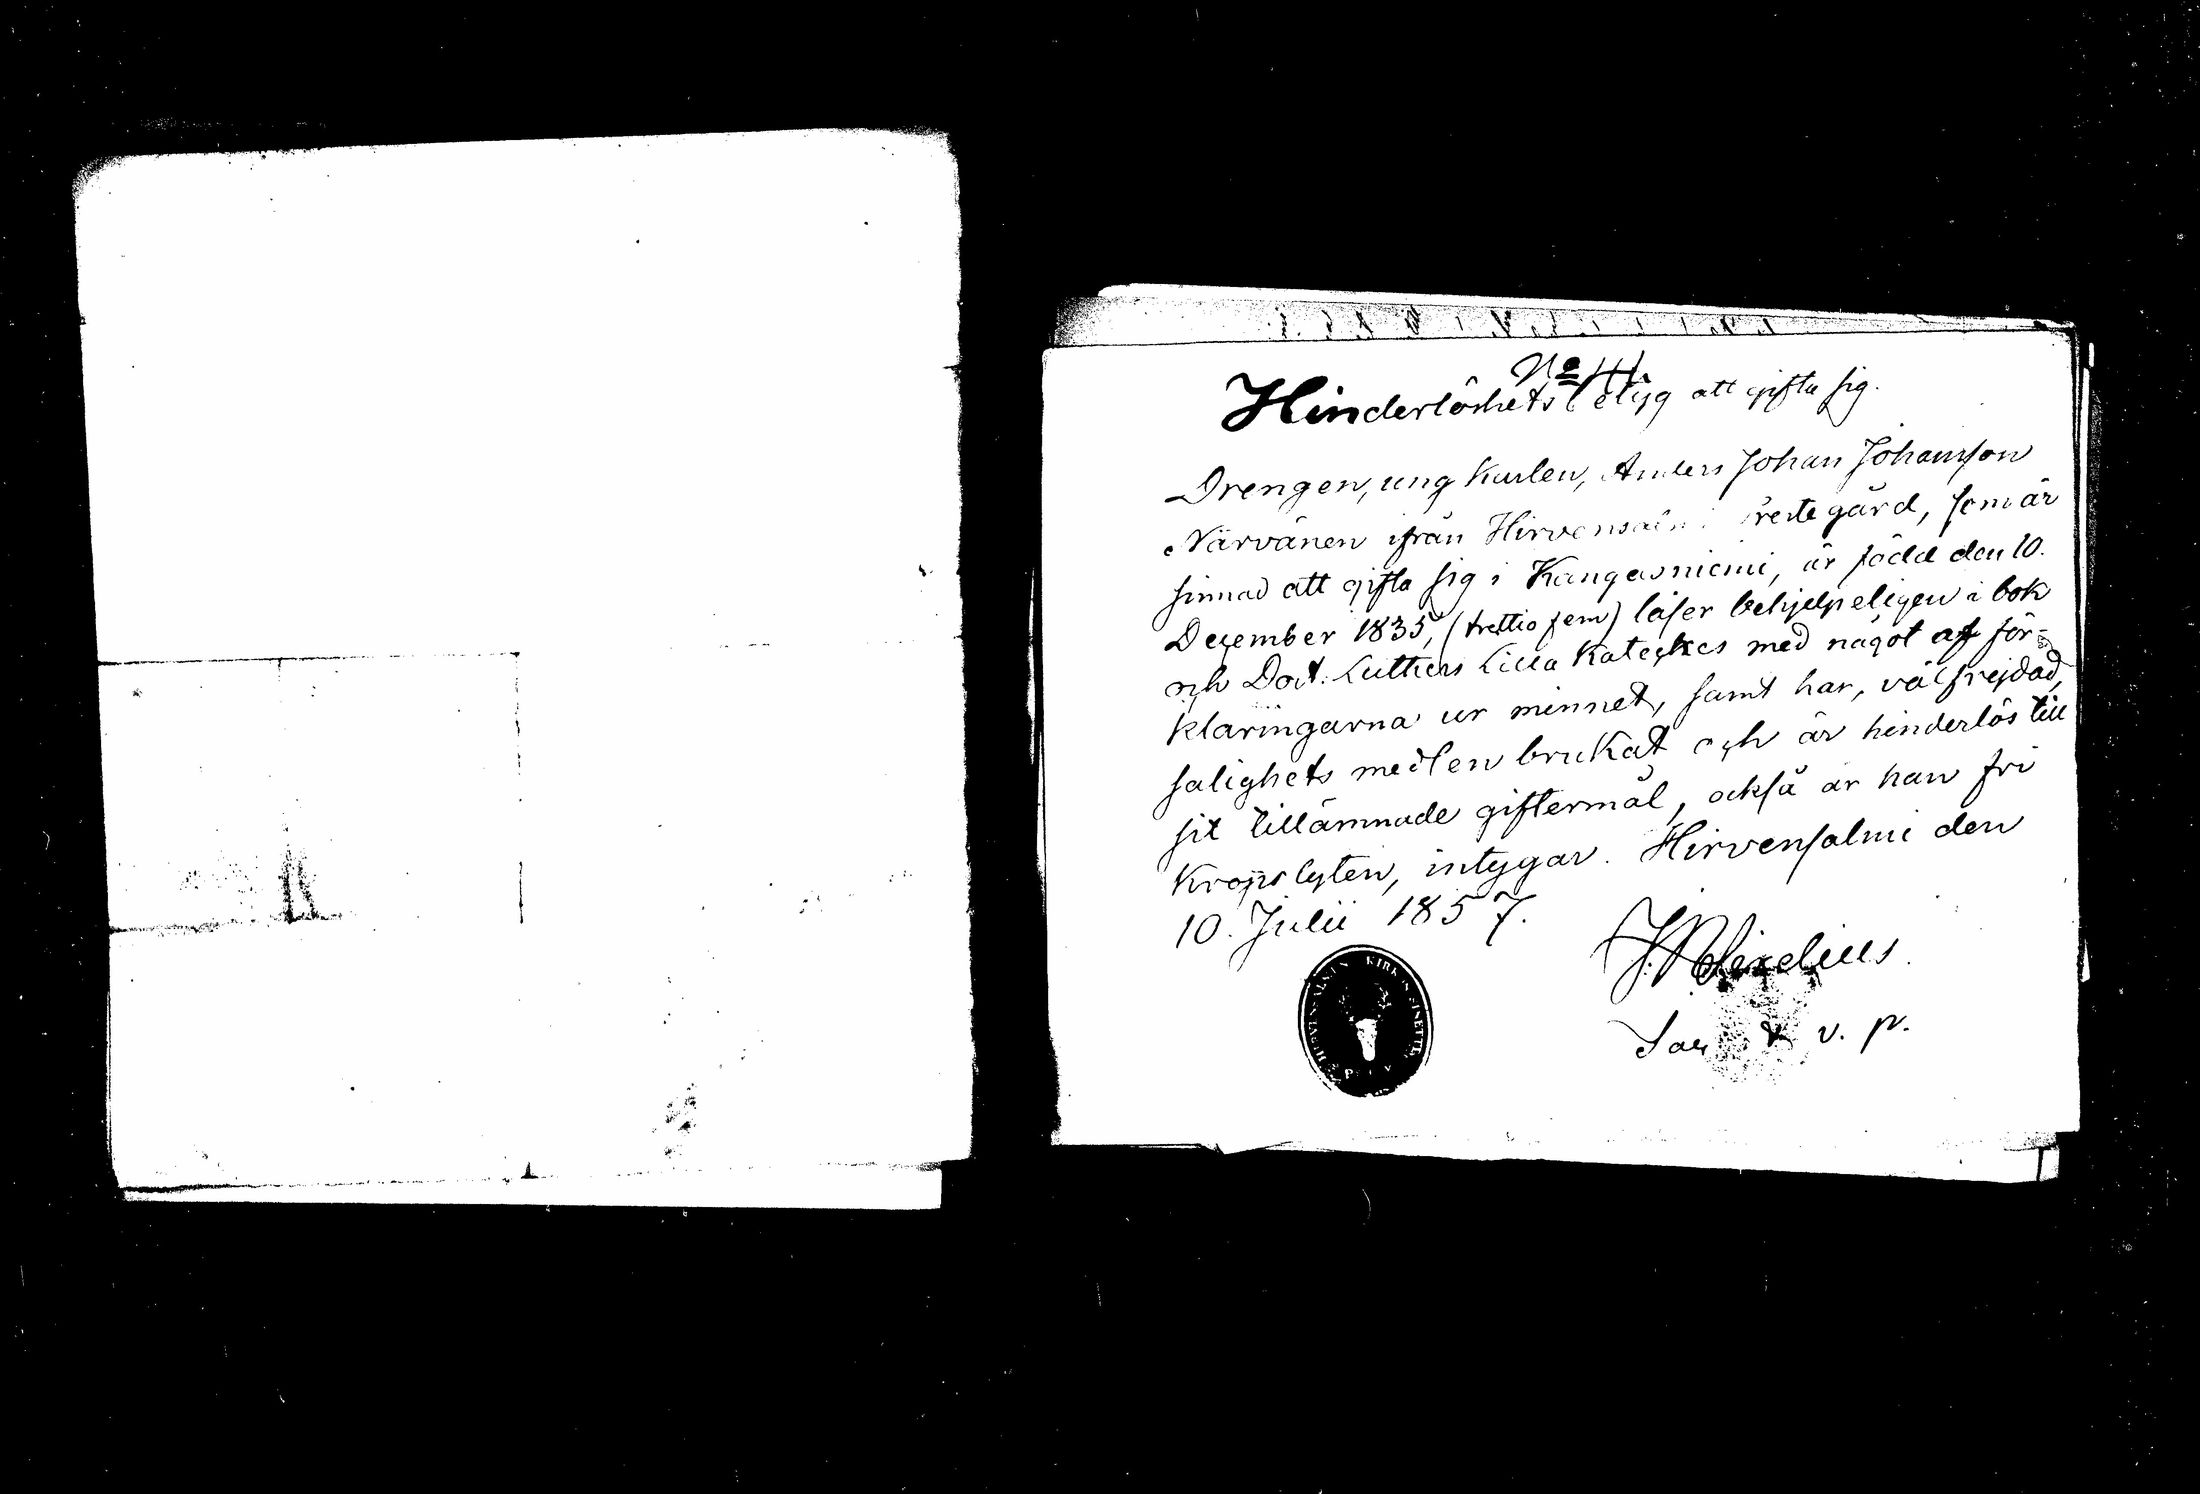 No 44.
Hinderlöshets betyg att gifta sig.
Drengen, ung Karlen, Anders Johan Johansson
Närvänen ifrån Hirvensalmi Prestegård, som är
sinnad att gifta sig i Kangasniemi, är född den 10.
December 1835, (trettio fem) läser behjelpeligen i bok
och Doct. Luthers Lilla Kateches med något af för-
klaringarna ur minnet, samt har, välfrejdad,
salighets medlen brukat och är hinderlös till
sit tillämnade giftermål, också är han fri
Kropslyten, intygar. Hirvensalmi den
10. Julii 1857.
v. p.
HIRVENSALMEN KIRKON SINETTI